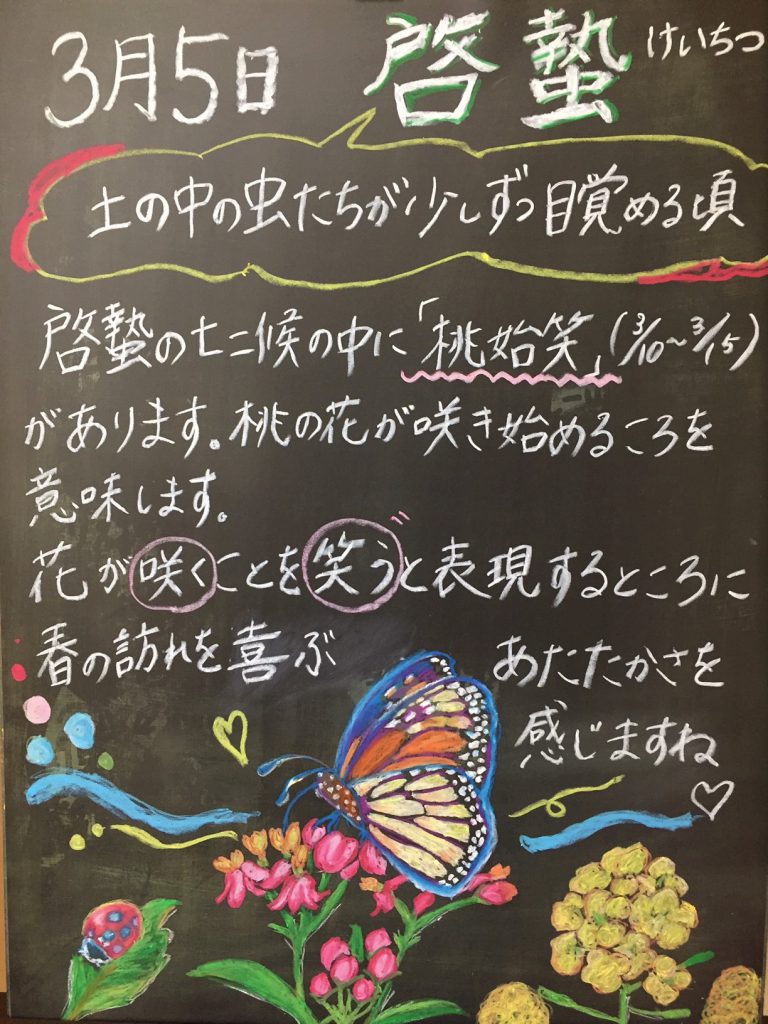 3月5日 啓蟄 けいちつ
土の中の虫たちが少しずつ目覚める頃
啓蟄の七二候の中に「桃始笑」(3/10~3/15)
があります。桃の花が咲き始めるころを
意味します。
花が咲くことを笑うと表現するところに
春の訪れを喜ぶ あたたかさを
感じますね